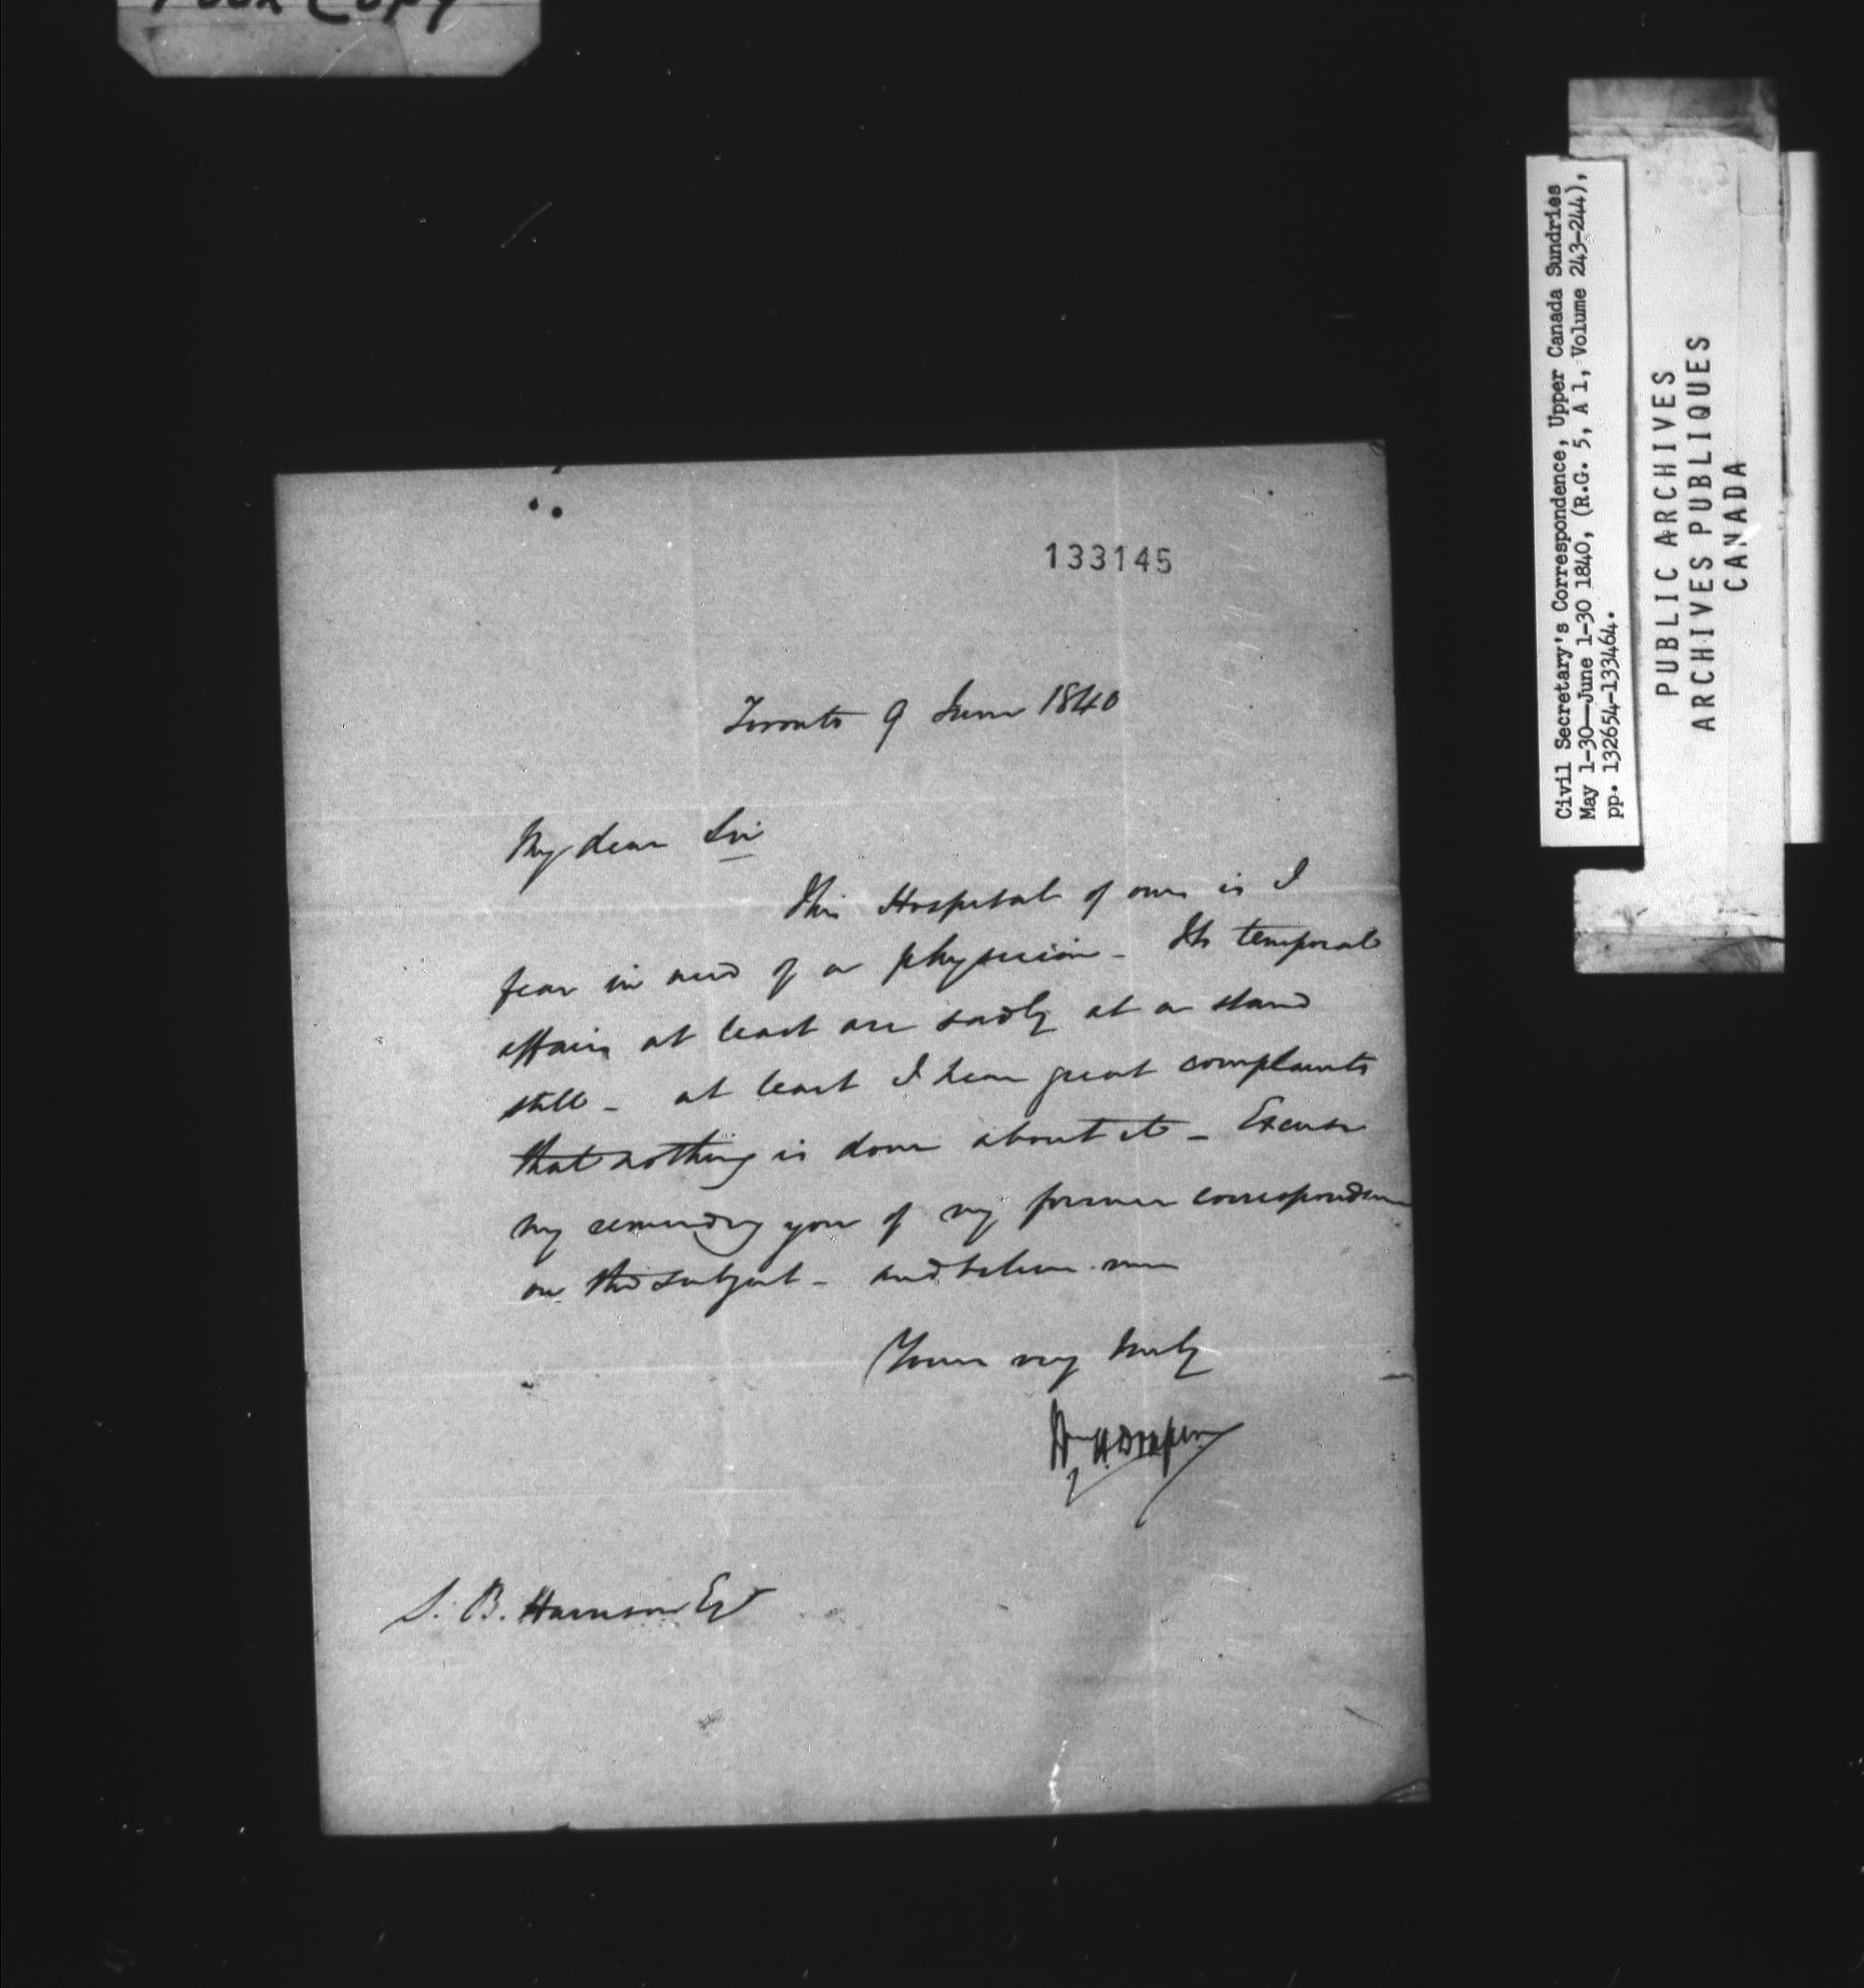 Poor Copy
133145
Toronto 9 June 1840
My dear Sir
This Hospital of ours is I
fear in need of a physician - Its temporal
affairs at least are sadly at a stand
still - at least I hear great complaints
that nothing is done about it - Excuse
my reminding you of my former correspondence
on the subject - and believe me
Yours very truly
Wm H Draper
S. B. Harrison Esq
Civil Secretary's Correspondence, Upper Canada Sundries
May 1-30—June 1-30 1840, (R.G. 5, A 1, Volume 243-244),
pp. 132654-133464.
PUBLIC ARCHIVES
ARCHIVES PUBLIQUES
CANADA